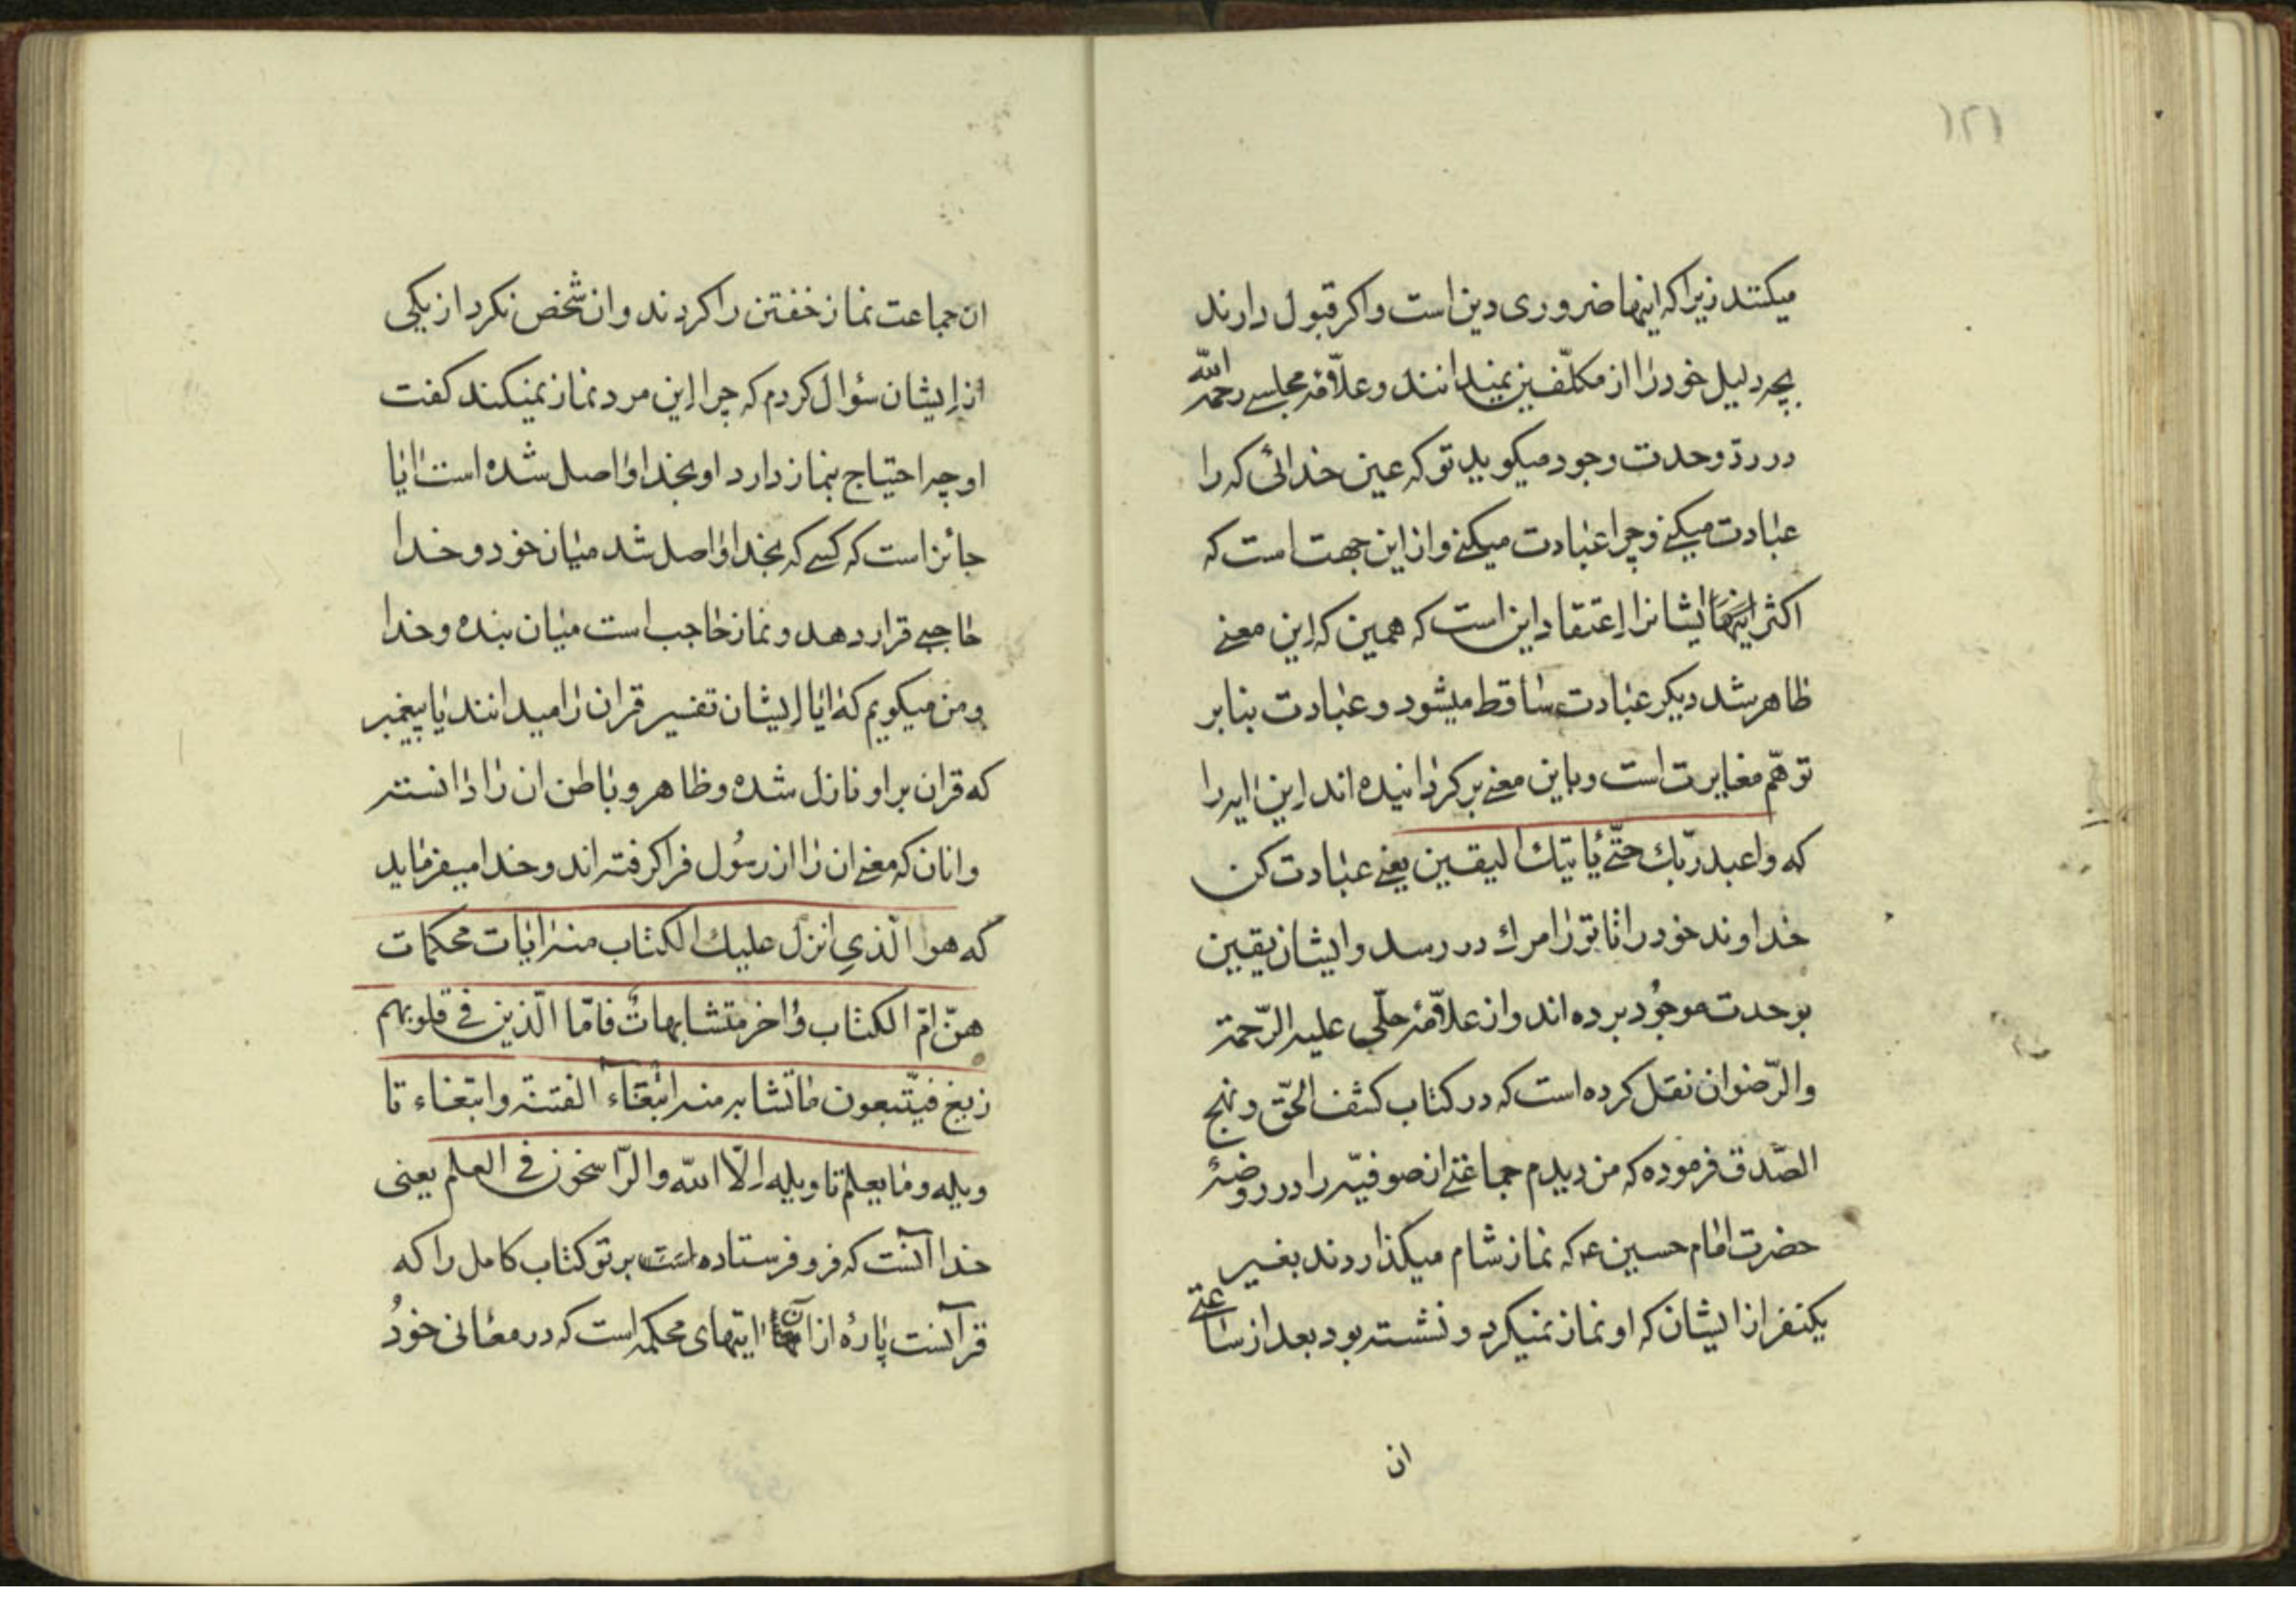 ۱۲۱
میکنند زیرا که اینها ضروری دین است و اکر قبول دارند
بچه دلیل خود را از مکلّفین نمیدانند و علّامهٔ مجلسے رحمه الله
در ردّ وحدت وجود میکوید تو که عین خدائی که را
عبادت میکنے و چرا عبادت میکنے و از این جهت است که
اکثر ایشانرا اعتقاد این است که همین که این معنے
ظاهر شد دیکر عبادت ساقط میشود و عبادت بنا بر
توهّم مغایرت است و باین معنے برکردانیده اند این ایه را
که واعبد ربّك حتّے یأتیك الیقین یعنے عبادت کن
خداوند خود را تا تو را مرك در رسد و ایشان یقین
بوحدت موجود برده اند و از علّامهٔ حلّی علیه الرّحمة
والرّضوان نقل کرده است که در کتاب کشف الحقّ و نهج
الصّدق فرموده که من دیدم جماعتے از صوفیّه را در روضهٔ
حضرت امام حسین ع که نماز شام میکذاردند بغیر
یکنفر از ایشان که او نماز نمیکرد و نشسته بود بعد از ساعتے
ان
ان جماعت نماز خفتن را کردند و ان شخص نکرد از یکی
از ایشان سؤال کردم که چرا این مرد نماز نمیکند کفت
او چه احتیاج بنماز دارد او بخدا واصل شده است ایا
جائز است که کسے که بخدا واصل شد میان خود و خدا
حاجبے قرار دهد و نماز حاجب است میان بنده و خدا
و من میکویم که ایا ایشان تفسیر قران را میدانند یا پیغمبر
که قران بر او نازل شده و ظاهر و باطن ان را دانسته
و انان که معنے ان را از رسُول فرا کرفته اند و خدا میفرماید
که هو الّذي انزل علیك الکتاب منه ایات محکمات
هنّ امّ الکتاب و اخر متشابهاتٌ فامّا الّذین فی قلوبهم
زیغ فیتّبعون ما تشابه منه ابتغاء الفتنة و ابتغاء تا
ویله و ما یعلم تاویله الّا الله و الرّاسخون فی العلم یعنی
خدا آنست که فرو فرستاده است بر تو کتاب کامل را که
قرآنست پارهٔ از آن ایتهای محکمه است که در معانی خودُ